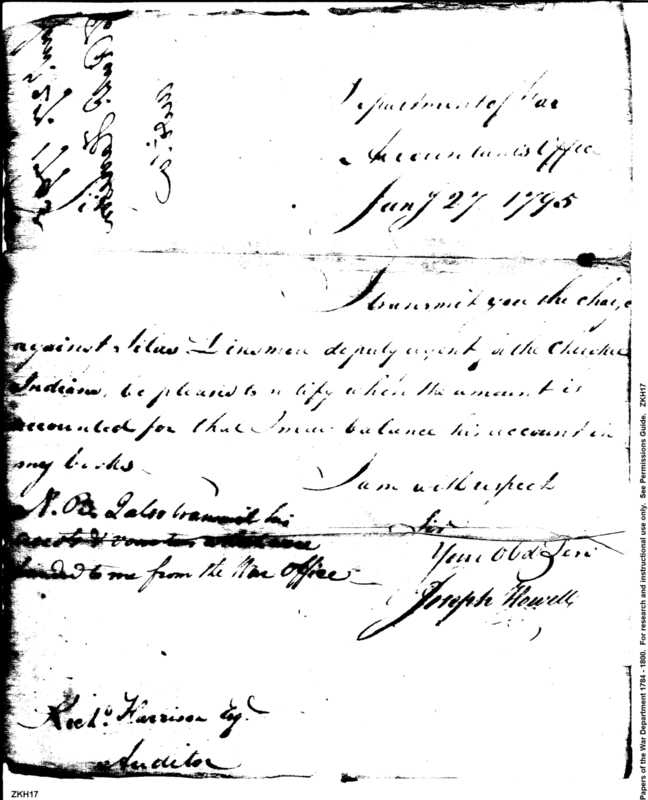 Department of War
Accountants Office
Jany 27 1795
I transmit you the charge
against Silas Dinsmon deputy agent to the Cherokee
Indians, be pleased to notify when the amount is
accounted for that I may balance his account in
my books
I am with respect
Sir
Your Obd Ser
Joseph Howell
N.B. I also transmit his
accots & vouchers
handed to me from the War Office
Richd Harrison Esqr
Auditor
ZKH17
Papers of the War Department 1784 - 1800. For research and instructional use only. See Permissions Guide. ZKH17